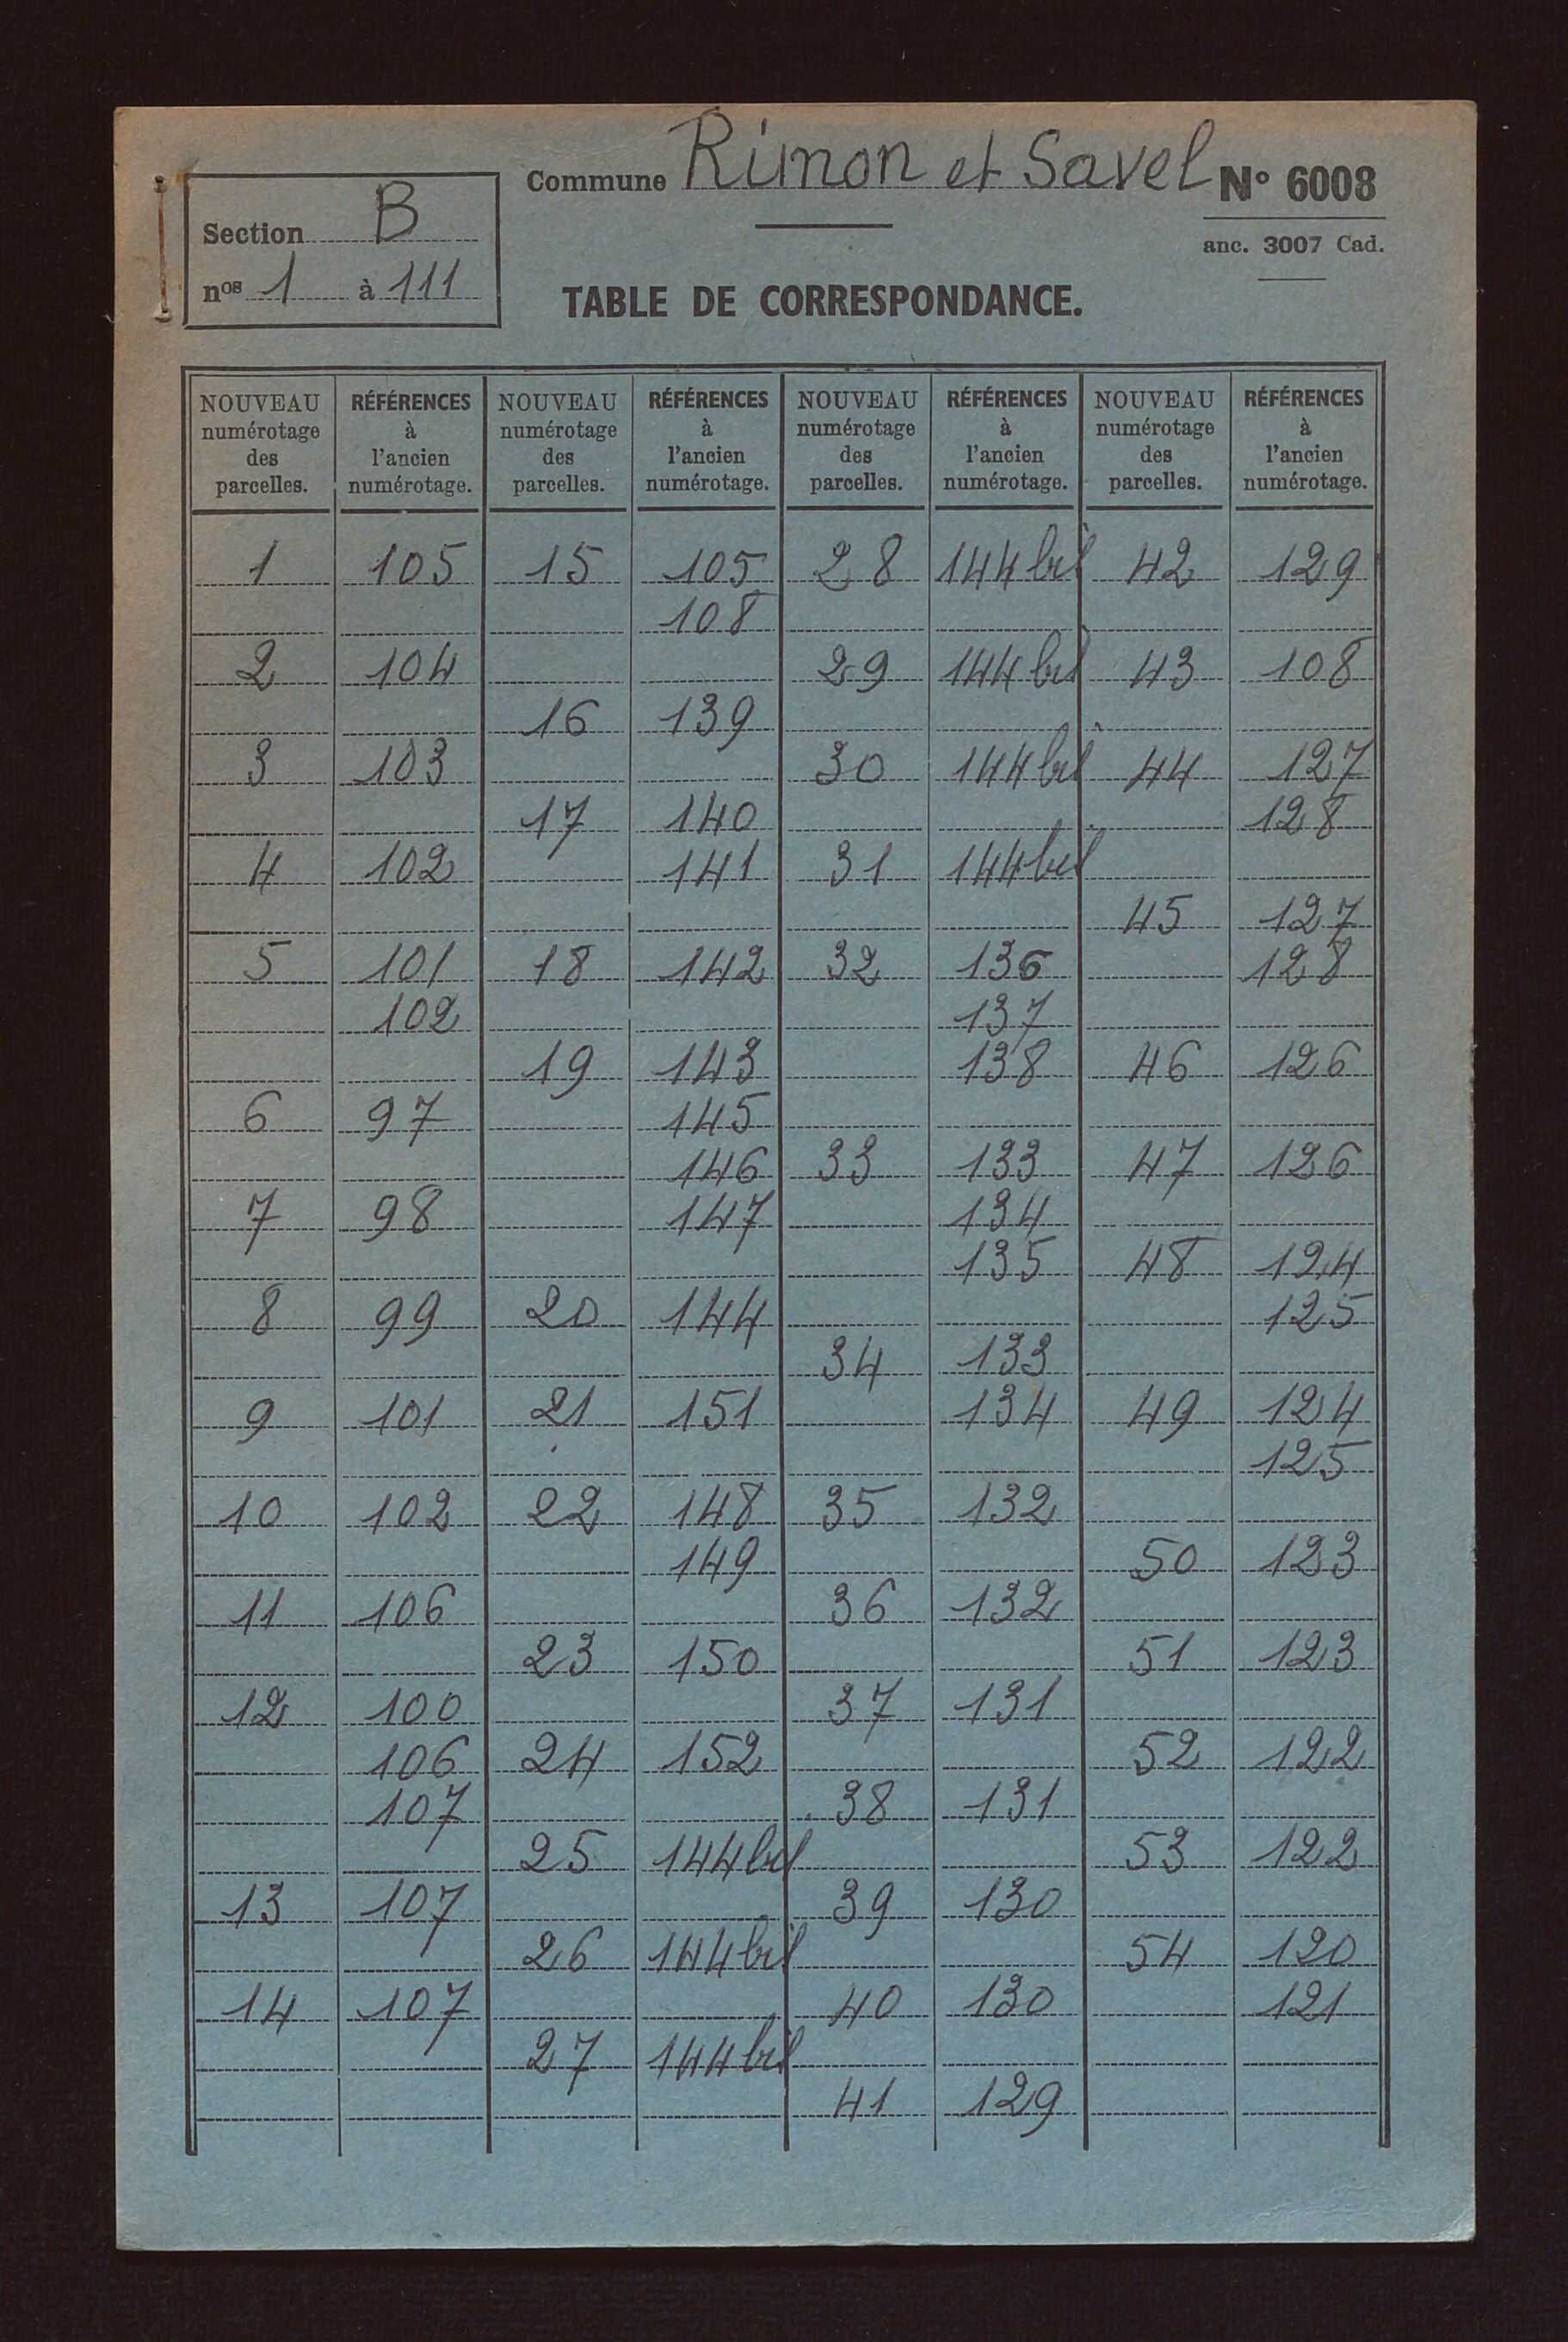 Commune Rimon et Savel N° 6008
anc. 3007 Cad.
Section B
nos 1 à 111
TABLE DE CORRESPONDANCE.
NOUVEAU numérotage des parcelles. RÉFÉRENCES à l'ancien numérotage. NOUVEAU numérotage des parcelles. RÉFÉRENCES à l'ancien numérotage. NOUVEAU numérotage des parcelles. RÉFÉRENCES à l'ancien numérotage. NOUVEAU numérotage des parcelles. RÉFÉRENCES à l'ancien numérotage.
1 105 15 105 28 144 bis 42 129
108
2 104 29 144 bis 43 108
16 139
3 103 30 144 bis 44 127
17 140 128
4 102 141 31 144 bis
45 127
5 101 18 142 32 136 128
102 137
19 143 138 46 126
6 97 145
146 33 133 47 126
7 98 147 134
135 48 124
8 99 20 144 125
34 133
9 101 21 151 134 49 124
125
10 102 22 148 35 132
149 50 123
11 106 36 132
23 150 51 123
12 100 37 131
106 24 152 52 122
107 38 131
25 144 bis 53 122
13 107 39 130
26 144 bis 54 120
14 107 40 130 121
27 144 bis
41 129